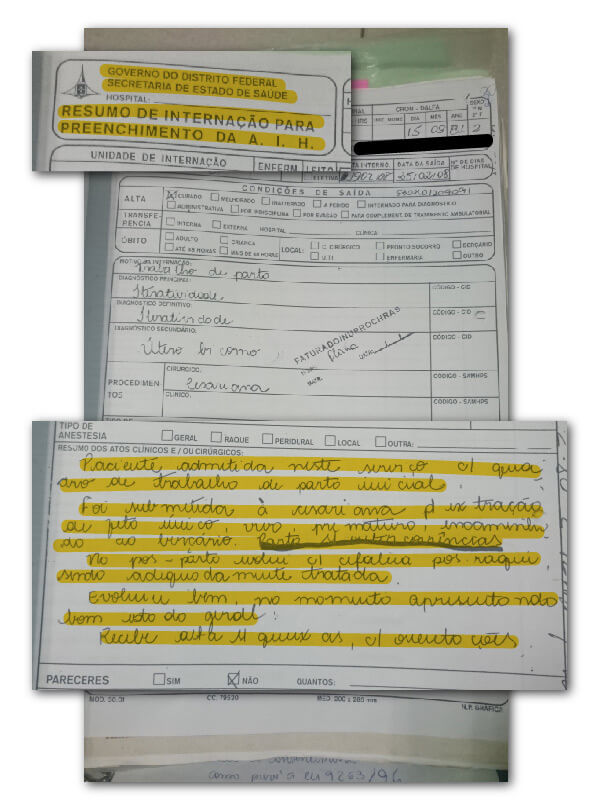 GOVERNO DO DISTRITO FEDERAL
SECRETARIA DE ESTADO DE SAÚDE
HOSPITAL:
RESUMO DE INTERNAÇÃO PARA
PREENCHIMENTO DA A. I. H.
DIA MÊS ANO
15 09
UNIDADE DE INTERNAÇÃO ENFERM LEITO
DATA DA SAÍDA Nº DE DIAS
25/02/08
CONDIÇÕES DE SAÍDA
ALTA CURADO MELHORADO INALTERADO A PEDIDO INTERNADO PARA DIAGNÓSTICO
ADMINISTRATIVA POR INDISCIPLINA POR EVASÃO PARA COMPLEMENT. DE TRATAMENTO AMBULATORIAL
TRANSFE-
RÊNCIA INTERNA EXTERNA HOSPITAL CLÍNICA
ÓBITO ADULTO CRIANÇA LOCAL: C. CIRÚRGICO PRONTO SOCORRO BERÇÁRIO
ATÉ 48 HORAS MAIS DE 48 HORAS U.T.I ENFERMARIA OUTRO
MOTIVO DA INTERNAÇÃO:
Trabalho de parto
DIAGNÓSTICO PRINCIPAL: CÓDIGO - CID
Iteratividade
DIAGNÓSTICO DEFINITIVO: CÓDIGO - CID
Iteratividade
DIAGNÓSTICO SECUNDÁRIO: CÓDIGO - CID
Útero bicorno
PROCEDIMEN
TOS
CIRÚRGICO: CÓDIGO - SAMHPS
Cesariana
CLÍNICO: CÓDIGO - SAMHPS
TIPO DE
ANESTESIA GERAL RAQUE PERIDURAL LOCAL OUTRA:
RESUMO DOS ATOS CLÍNICOS E / OU CIRÚRGICOS:
Paciente admitida neste serviço c/ qua
dro de trabalho de parto inicial.
Foi submetida à cesariana p/ extração
de feto único, vivo, prematuro, encaminha
do ao berçário. Parto s/ intercorrências
No pós-parto evolui c/ cefaléia pós raqui,
sendo adequadamente tratada.
Evoluiu bem, no momento apresentando
bom estado geral.
Recebe alta s/ queixas, c/ orientações
PARECERES SIM NÃO QUANTOS:
MOD. 30.01 MED. 200 x 280 mm N.P. GRÁFICA